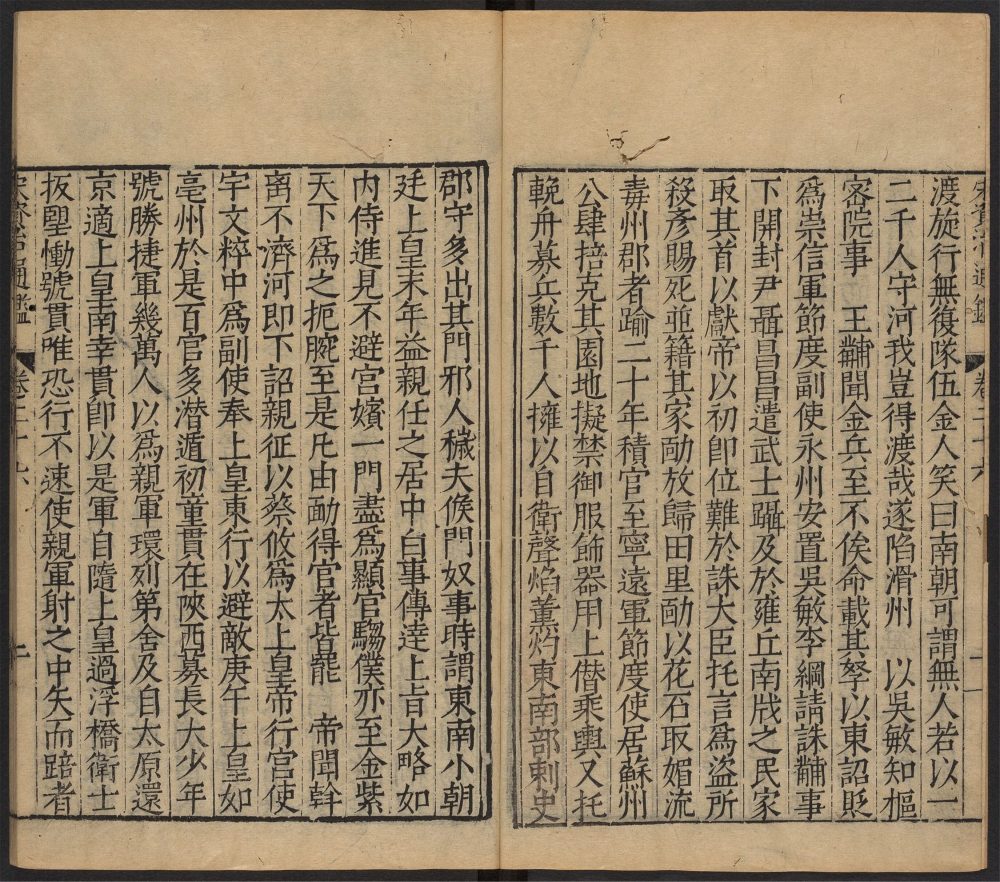 渡旋行無復隊伍金人笑曰南朝可謂無人若以一
二千人守河我豈得渡哉遂陷滑州 以吳敏知樞
密院事 王黼聞金兵至不俟命載其孥以東詔貶
爲崇信軍節度副使永州安置吳敏李綱請誅黼事
下開封尹聶昌昌遣武士躡及於雍丘南戕之民家
取其首以獻帝以初卽位難於誅大臣托言爲盜所
殺彥賜死並籍其家勔放歸田里勔以花石取媚流
毒州郡者踰二十年積官至寧遠軍節度使居蘇州
公肆掊克其園地擬禁御服飾器用上僭乘輿又托
輓舟募兵數千人擁以自衛聲焰薰灼東南部刺史
郡守多出其門邪人穢夫候門奴事時謂東南小朝
廷上皇末年益親任之居中白事傳達上旨大略如
内侍進見不避宮嬪一門盡爲顯官騶僕亦至金紫
天下爲之扼腕至是凡由勔得官者皆罷 帝聞斡
离不濟河即下詔親征以蔡攸爲太上皇帝行宮使
宇文粹中爲副使奉上皇東行以避敵庚午上皇如
亳州於是百官多潛遁初童貫在陜西募長大少年
號勝捷軍幾萬人以爲親軍環列第舍及自太原還
京適上皇南幸貫卽以是軍自隨上皇過浮橋衛士
扳朢慟號貫唯恐行不速使親軍射之中矢而踣者